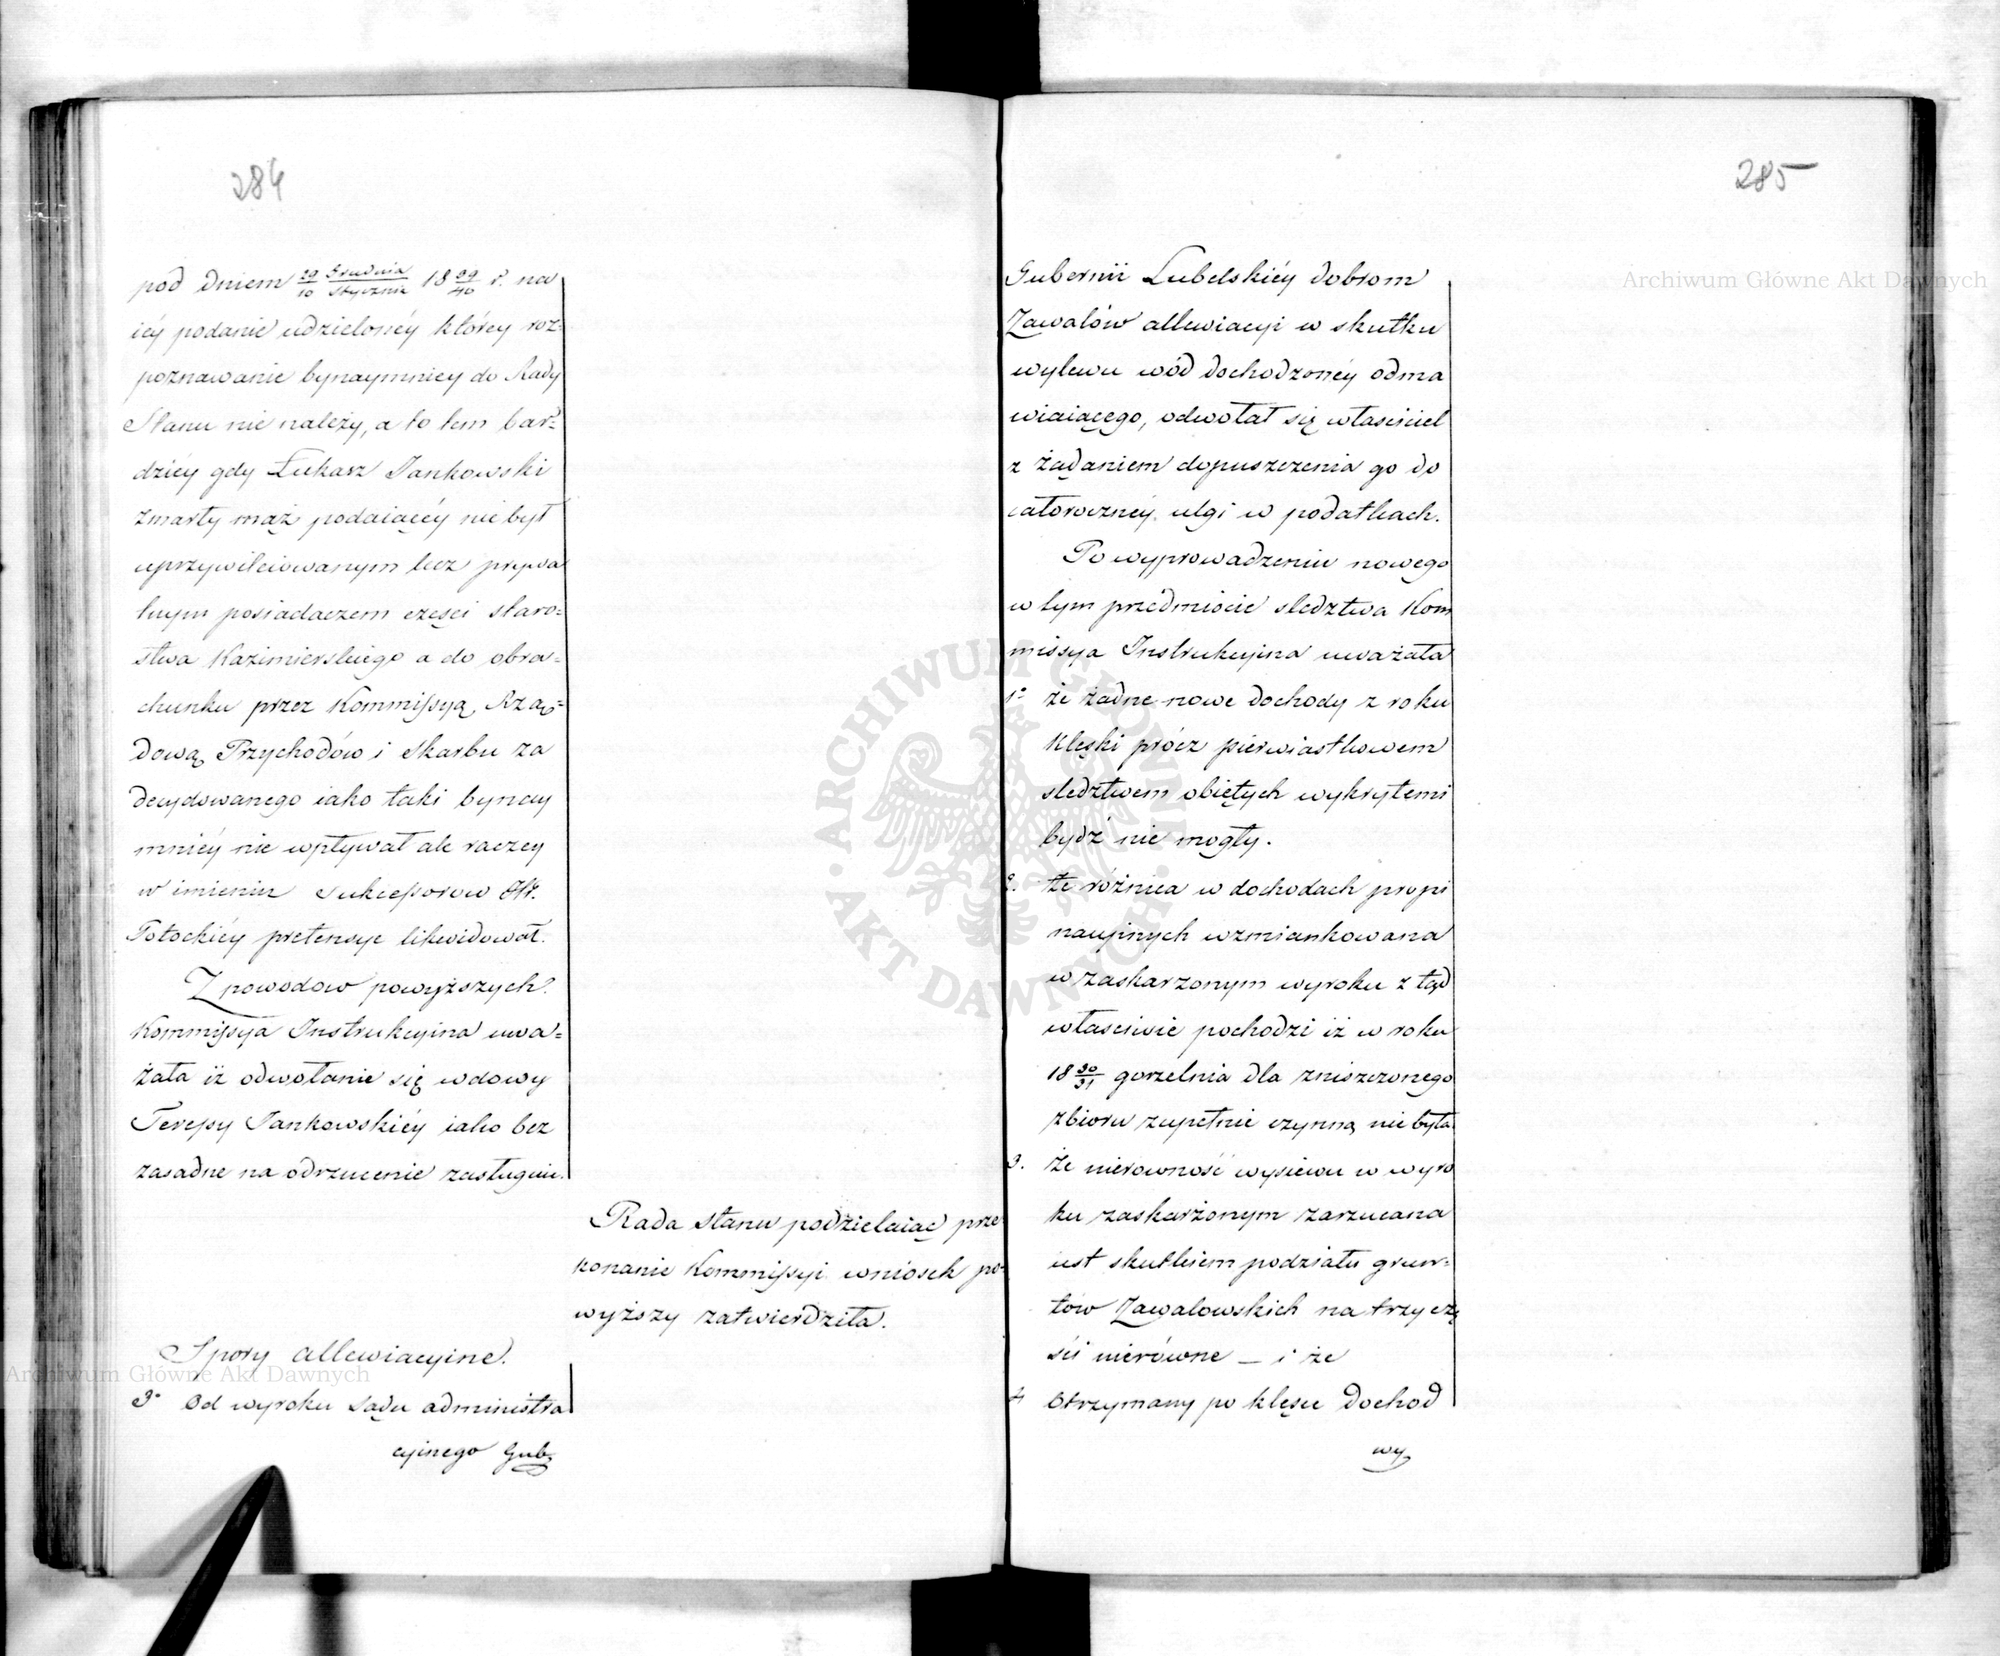 284
pod dniem 29/10 Grudnia/Stycznia 18 39/40 r. na
iéy podanie udzielonéy którey roz=
poznawanie bynaymniey do Rady
Stanu nie należy, a to tem bar=
dziéy gdy Łukasz Jankowski
zmarły mąż podaiącéy nie był
uprzywileiowanym lecz prywa
tnym posiadaczem części staro=
stwa Kazimierskiego a do obra=
chunku przez Kommissyą Rzą=
dową Przychodów i Skarbu za
decydowanego iako taki bynay
mniéy nie wpływał ale raczey
w imieniu Sukcessorow Hr.
Potockiéy pretensye likwidował.
Z powodow powyższych
Kommissya Instrukcyina uwa=
żała iż odwołanie się wdowy
Teressy Jankowskiéy iako bez
zasadne na odrzucenie zasługuie.
Rada Stanu podzielaiąc prze
konanie Kommissyi wniosek po=
wyższy zatwierdziła.
Spory allewiacyine.
3° Od wyroku Sądu administra
cyinego Gub.
285
Gubernii Lubelskiéy dobrom
Zawalów allewiacyi w skutku
wylewu wód dochodzonéy odma
wiaiącego, odwołał się własciciel
z żądaniem dopuszczenia go do
całorocznéy ulgi w podatkach.
Po wyprowadzeniu nowego
w tym przedmiocie sledztwa Kom
missya Instrukcyina uważała
1° że żadne nowe dochody z roku
klęski prócz pierwiastkowem
sledztwem obiętych wykrytemi
bydź nie mogły.
2. że różnica w dochodach propi
nacyinych wzmiankowana
w zaskarzonym wyroku z tąd
własciwie pochodzi iż w roku
18 30/31 gorzelnia dla zniszczonego
zbioru zupełnie czynną nie była
3. że nierowność wysiewu w wyro
ku zaskarżonym zarzucana
iest skutkiem podziału grun=
tów Zawalowskich na trzy czę
ści nierówne _ i że
4 otrzymany po klęsce dochod
wy
Archiwum Główne Akt Dawnych
Archiwum Główne Akt Dawnych
ARCHIWUM GŁÓWNE · AKT DAWNYCH ·